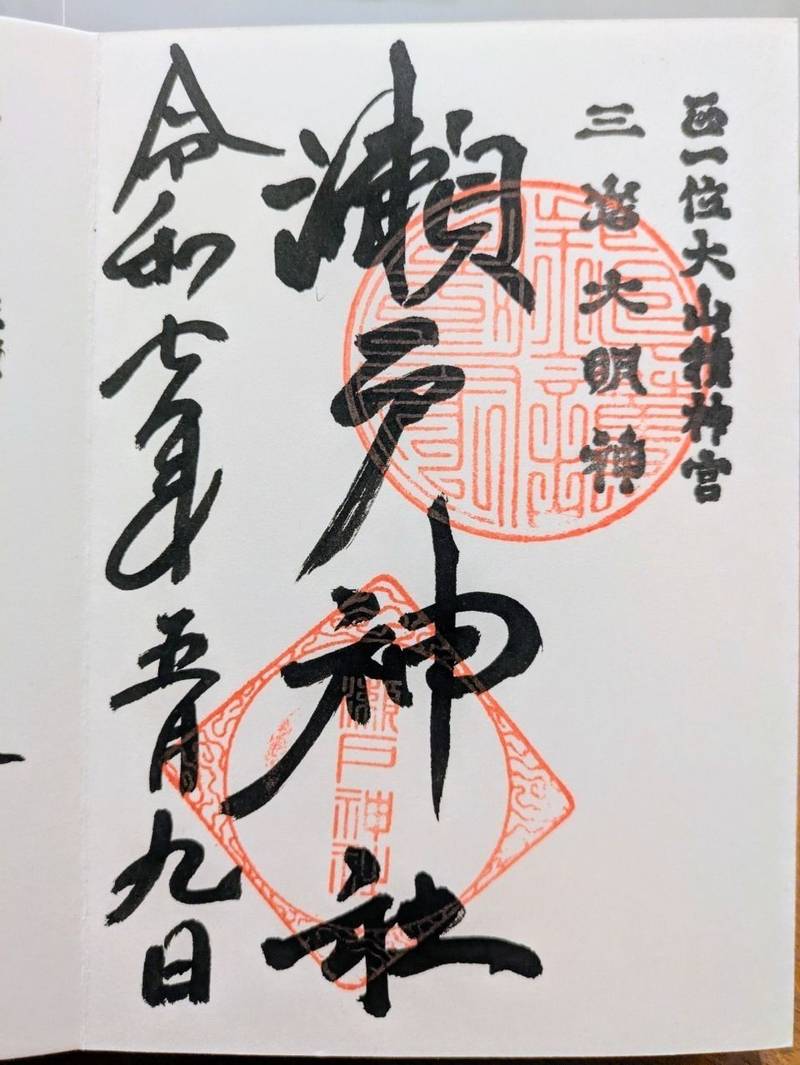 正一位大山積神宮
三嶌大明神
瀬戸神社
瀬戸神社
令和七年五月九日